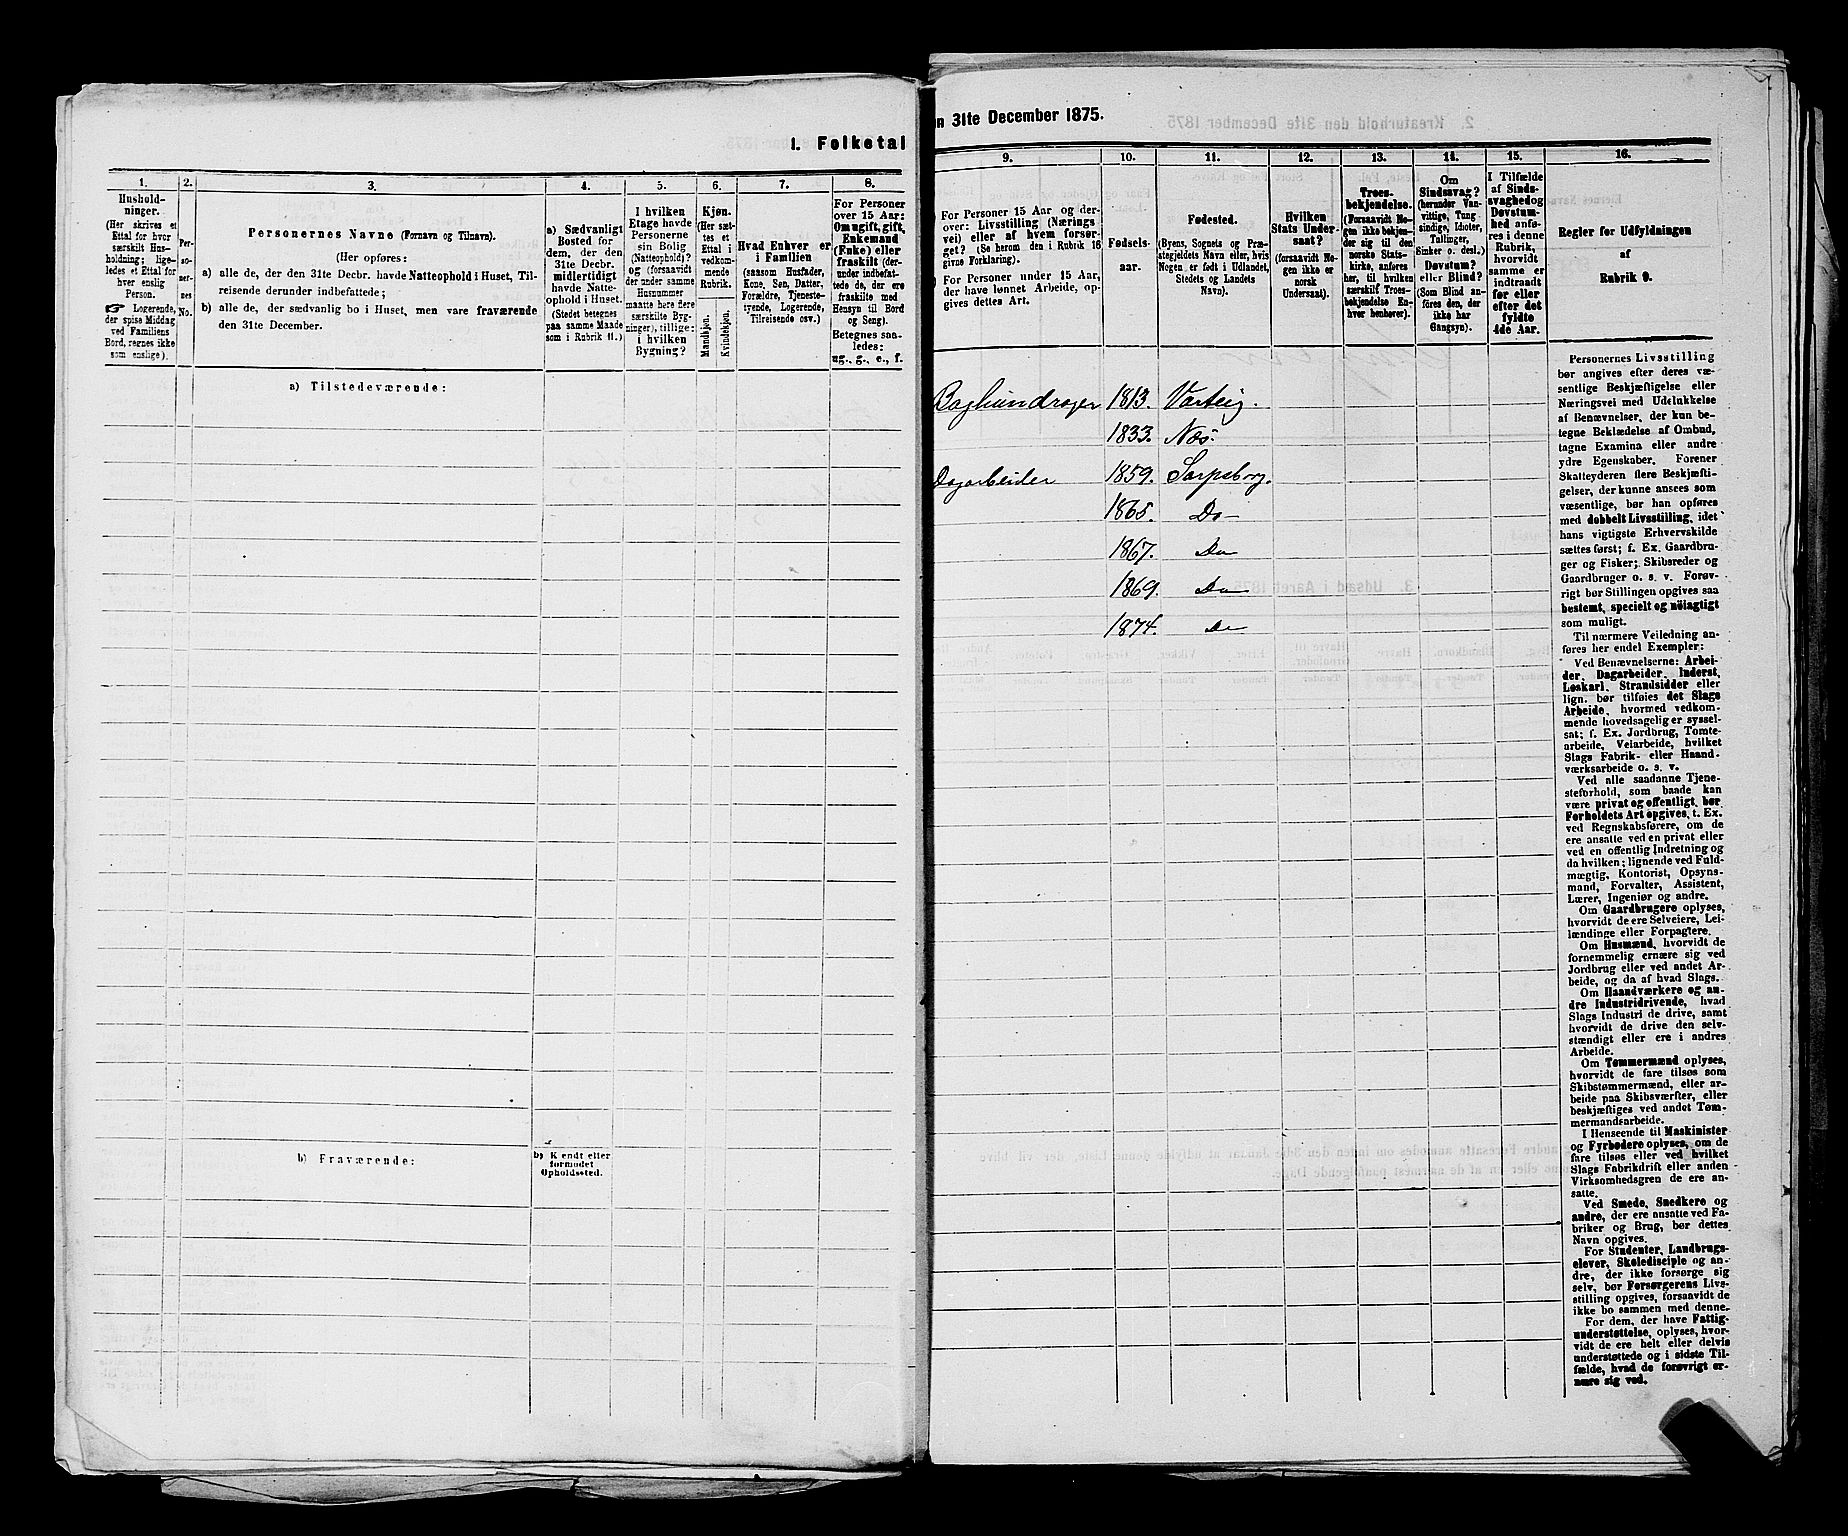 1. Folketal
1.
2.
3.
4.
5.
6.
7.
8.
Hushold-
ninger.
(Her skrives et
Ettal for hver
særskilt Hus-
holdning; lige-
ledes et Ettal for
hver enslig
Person.
Logerende,
der spise Middag
ved Familiens
Bord, regnes ikke
som enslige).
Per-
so-
ner-
nes
No.
Personernes Navne (Fornavn og Tilnavn).
(Her opføres:
a) alle de, der den 31te Decbr. havde Natteophold i Huset, Til-
reisende derunder indbefattede;
b) alle de, der sædvanlig bo i Huset, men vare fraværende
den 31te December.
a) Sædvanligt
Bosted for
dem, der den
31te Decbr.
midlertidigt
havde Natte-
ophold i Huset.
(Stedet betegnes
paa samme Maade
som i Rubrik 11.)
I hvilken
Etage havde
Personerne
sin Bolig
(Natteophold)?
og (forsaavidt
der under samme
Husnummer
maatte høre flere
særskilte Byg-
ninger), tillige:
i hvilken
Bygning?
Kjøn.
(Her sæt-
tes et
Ettal i
vedkom-
mende
Rubrik.
Mandkjøn.
Kvindekjøn.
Hvad Enhver er
i Familien
(saasom Husfader,
Kone, Søn, Datter,
Forældre, Tjeneste-
tyende, Logerende,
Tilreisende osv.)
For Personer
over 15 Aar:
Om ugift, gift,
Enkemand
(Enke) eller
fraskilt (der-
under indbefat-
tede de, der ere
fraskilte med
Hensyn til Bord
og Seng).
Betegnes saa-
ledes:
ug., g., e., f.
a) Tilstedeværende:
b) Fraværende:
b) Kjendt eller
formodet
Opholdssted.
31te December 1875.
9.
10.
11.
12.
13.
14.
15.
16.
For Personer 15 Aar og der-
over: Livsstilling (Nærings-
vei) eller af hvem forsør-
get? (Se herom den i Rubrik 16
givne Forklaring).
For Personer under 15 Aar,
der have lønnet Arbeide, op-
gives dettes Art.
Fødsels-
aar.
Fødested.
(Byens, Sognets og Præ-
stegjeldets Navn eller, hvis
Nogen er født i Udlandet,
Stedets og Landets
Navn).
Hvilken
Stats Under-
saat?
(forsaavidt No-
gen ikke er
norsk
Undersaat).
Troes-
bekjendelse.
(Forsaavidt No-
gen ikke bekjen-
der sig til den
norske Stats-
kirke, anføres
her, til hvilken
særskilt Troes-
bekjendelse En-
hver henhører).
Om
Sindssvag?
(herunder Van-
vittige, Tung-
sindige, Idioter,
Tullinger,
Sinker o. desl.)
Døvstum?
eller Blind?
(Som Blind an-
føres den, der
ikke har
Gangsyn).
I Tilfælde
af Sinds-
svaghed og
Døvstum-
hed anfø-
res i denne
Rubrik,
hvorvidt
samme er
indtraadt
før eller
efter det
fyldte
4de Aar.
Regler for Udfyldningen
af
Rubrik 9.
Baghundrager 1813. Varteig.
1833. Næs.
Dagarbeider 1859. Sarpsborg.
1865. Do
1867. Do
1869. Do
1874. Do
Personernes Livsstilling
bør angives efter deres væ-
sentlige Beskjæftigelse eller
Næringsvei med Udelukkelse
af Benævnelser, der kun be-
tegne Beklædelse af Ombud,
tagne Examina eller andre
ydre Egenskaber. Forener
Skatteyderen flere Beskjæfti-
gelser, der kunne ansees som
væsentlige, bør han opføres
med dobbelt Livsstilling, idet
hans vigtigste Erhvervskilde
sættes først; f. Ex. Gaardbru-
ger og Fisker; Skibsreder og
Gaardbruger o. s. v. Forøv-
rigt bør Stillingen opgives saa
bestemt, specielt og nøiagtigt
som muligt.
Til nærmere Veiledning an-
føres her endel Exempler:
Ved Benævnelserne: Arbei-
der, Dagarbeider, Inderst,
Løskarl, Strandsidder eller
lign. bør tilføies det Slags
Arbeide, hvormed vedkom-
mende hovedsagelig er syssel-
sat; f. Ex. Jordbrug, Tomte-
arbeide, Veiarbeide, hvilket
Slags Fabrik- eller Haand-
værksarbeide o. s. v.
Ved alle saadanne Tjene-
steforhold, som baade kan
være privat og offentligt, bør
Forholdets Art opgives, t. Ex.
ved Regnskabsførere, om de
ere ansatte ved en privat eller
ved en offentlig Indretning og
da hvilken; lignende ved Fuld-
mægtig, Kontorist, Opsyns-
mand, Forvalter, Assistent,
Lærer, Ingeniør og andre.
Om Gaardbrugere oplyses,
hvorvidt de ere Selveiere, Lei-
lændinge eller Forpagtere.
Om Husmænd, hvorvidt de
fornemmelig ernære sig ved
Jordbrug eller ved andet Ar-
beide, og da af hvad Slags.
Om Haandværkere og an-
dre Industridrivende, hvad
Slags Industri de drive, samt
hvorvidt de drive den selv-
stændigt eller ere i andres
Arbeide.
Om Tømmermænd oplyses,
hvorvidt de fare tilsøs som
Skibstømmermænd, eller ar-
beide paa Skibsværfter, eller
beskjæftiges ved andet Tøm-
mermandsarbeide.
I Henseende til Maskinister
og Fyrbødere oplyses, om de
fare tilsøs eller ved hvilket
Slags Fabrikdrift eller anden
Virksomhedsgren de ere an-
satte.
Ved Smede, Snedkere og
andre, der ere ansatte ved Fa-
briker og Brug, bør dettes
Navn opgives.
For Studenter, Landbrugs-
elever, Skoledisciple og an-
dre, der ikke forsørge sig
selv, bør Forsørgerens Livs-
stilling opgives, forsaavidt de
ikke bo sammen med denne.
For dem, der have Fattig-
understøttelse, oplyses, hvor-
vidt de ere helt eller delvis
understøttede og i sidste Til-
fælde, hvad de forøvrigt er-
nære sig ved.